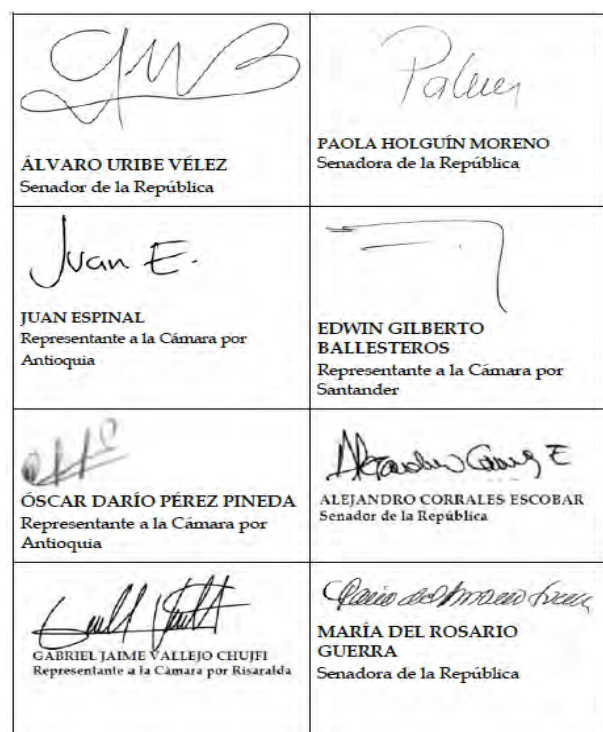 ÁLVARO URIBE VÉLEZ
Senador de la República
PAOLA HOLGUÍN MORENO
Senadora de la República
Juan E.
JUAN ESPINAL
Representante a la Cámara por
Antioquia
EDWIN GILBERTO
BALLESTEROS
Representante a la Cámara por
Santander
ÓSCAR DARÍO PÉREZ PINEDA
Representante a la Cámara por
Antioquia
ALEJANDRO CORRALES ESCOBAR
Senador de la República
GABRIEL JAIME VALLEJO CHUJFI
Representante a la Cámara por Risaralda
MARÍA DEL ROSARIO
GUERRA
Senadora de la República